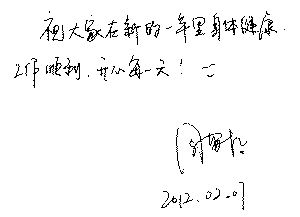 祝大家在新的一年里身体健康.
工作顺利.开心每一天!
2012.02.07